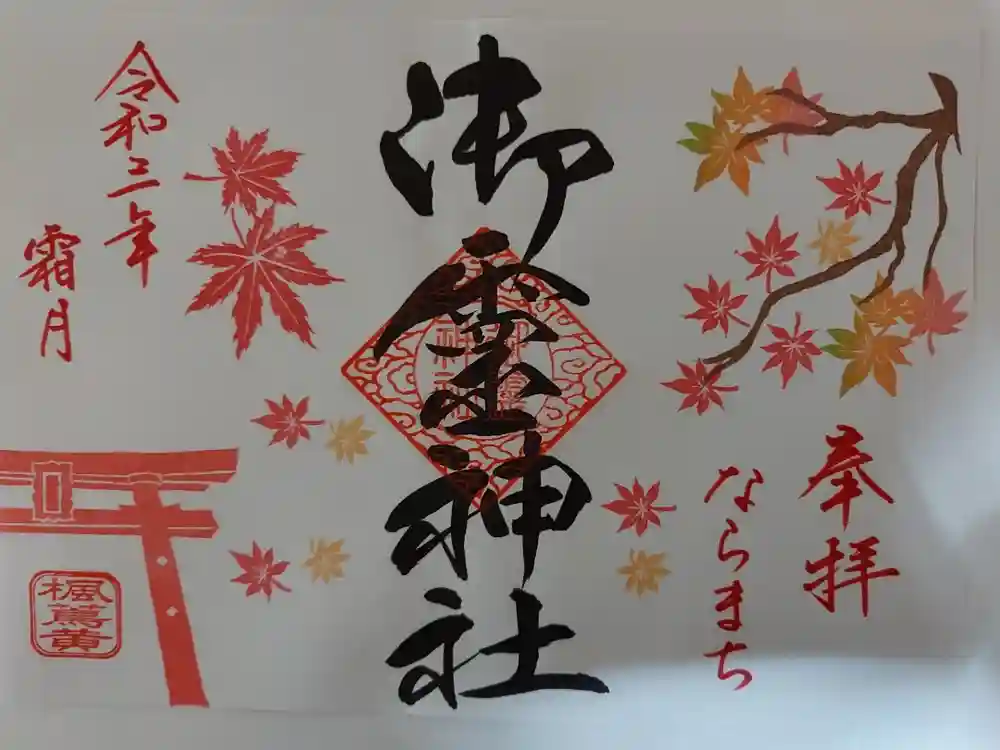 奉拝
ならまち
御霊神社
令和三年
霜月
楓蔦黄